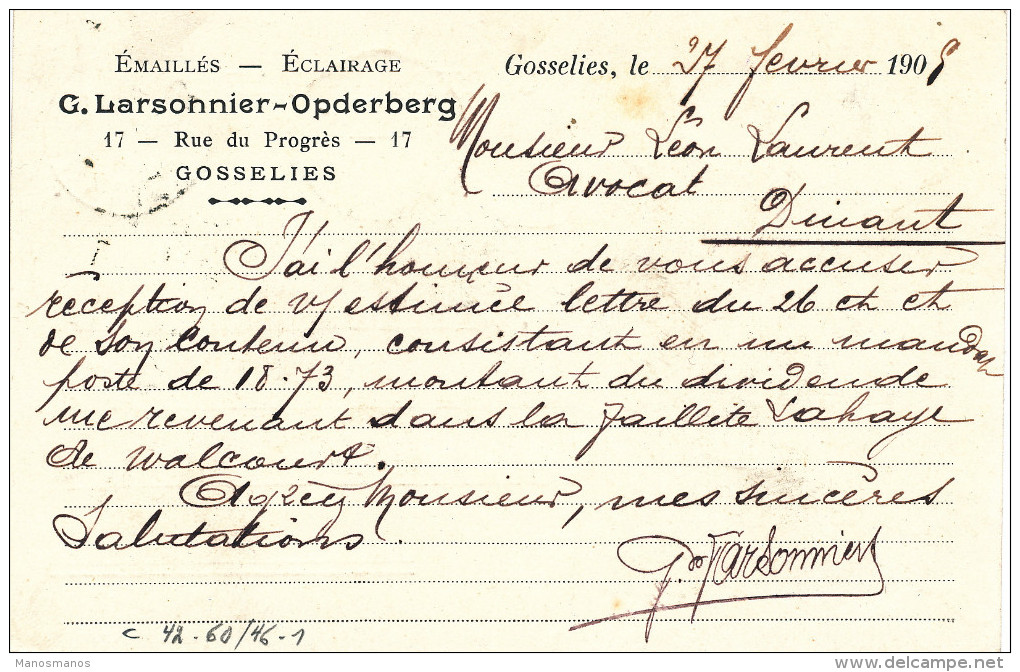 ÉMAILLÉS — ÉCLAIRAGE
G. LARSONNIER-OPDERBERG
17 — Rue du Progrès — 17
GOSSELIES
Gosselies, le 27 fevrier 190
Monsieur Léon Laurent
Avocat
Dinant
J'ai l'honneur de vous accuser
réception de v/ estimée lettre du 26 ct et
de son contenu, consistant en un mandat
poste de 18.73, montant du dividende
me revenant dans la faillite Lahaye
de Walcourt.
Agréez Monsieur, mes sincères
Salutations.
Larsonnier
c 42-60/46-1
Manosmanos
delcampe.net